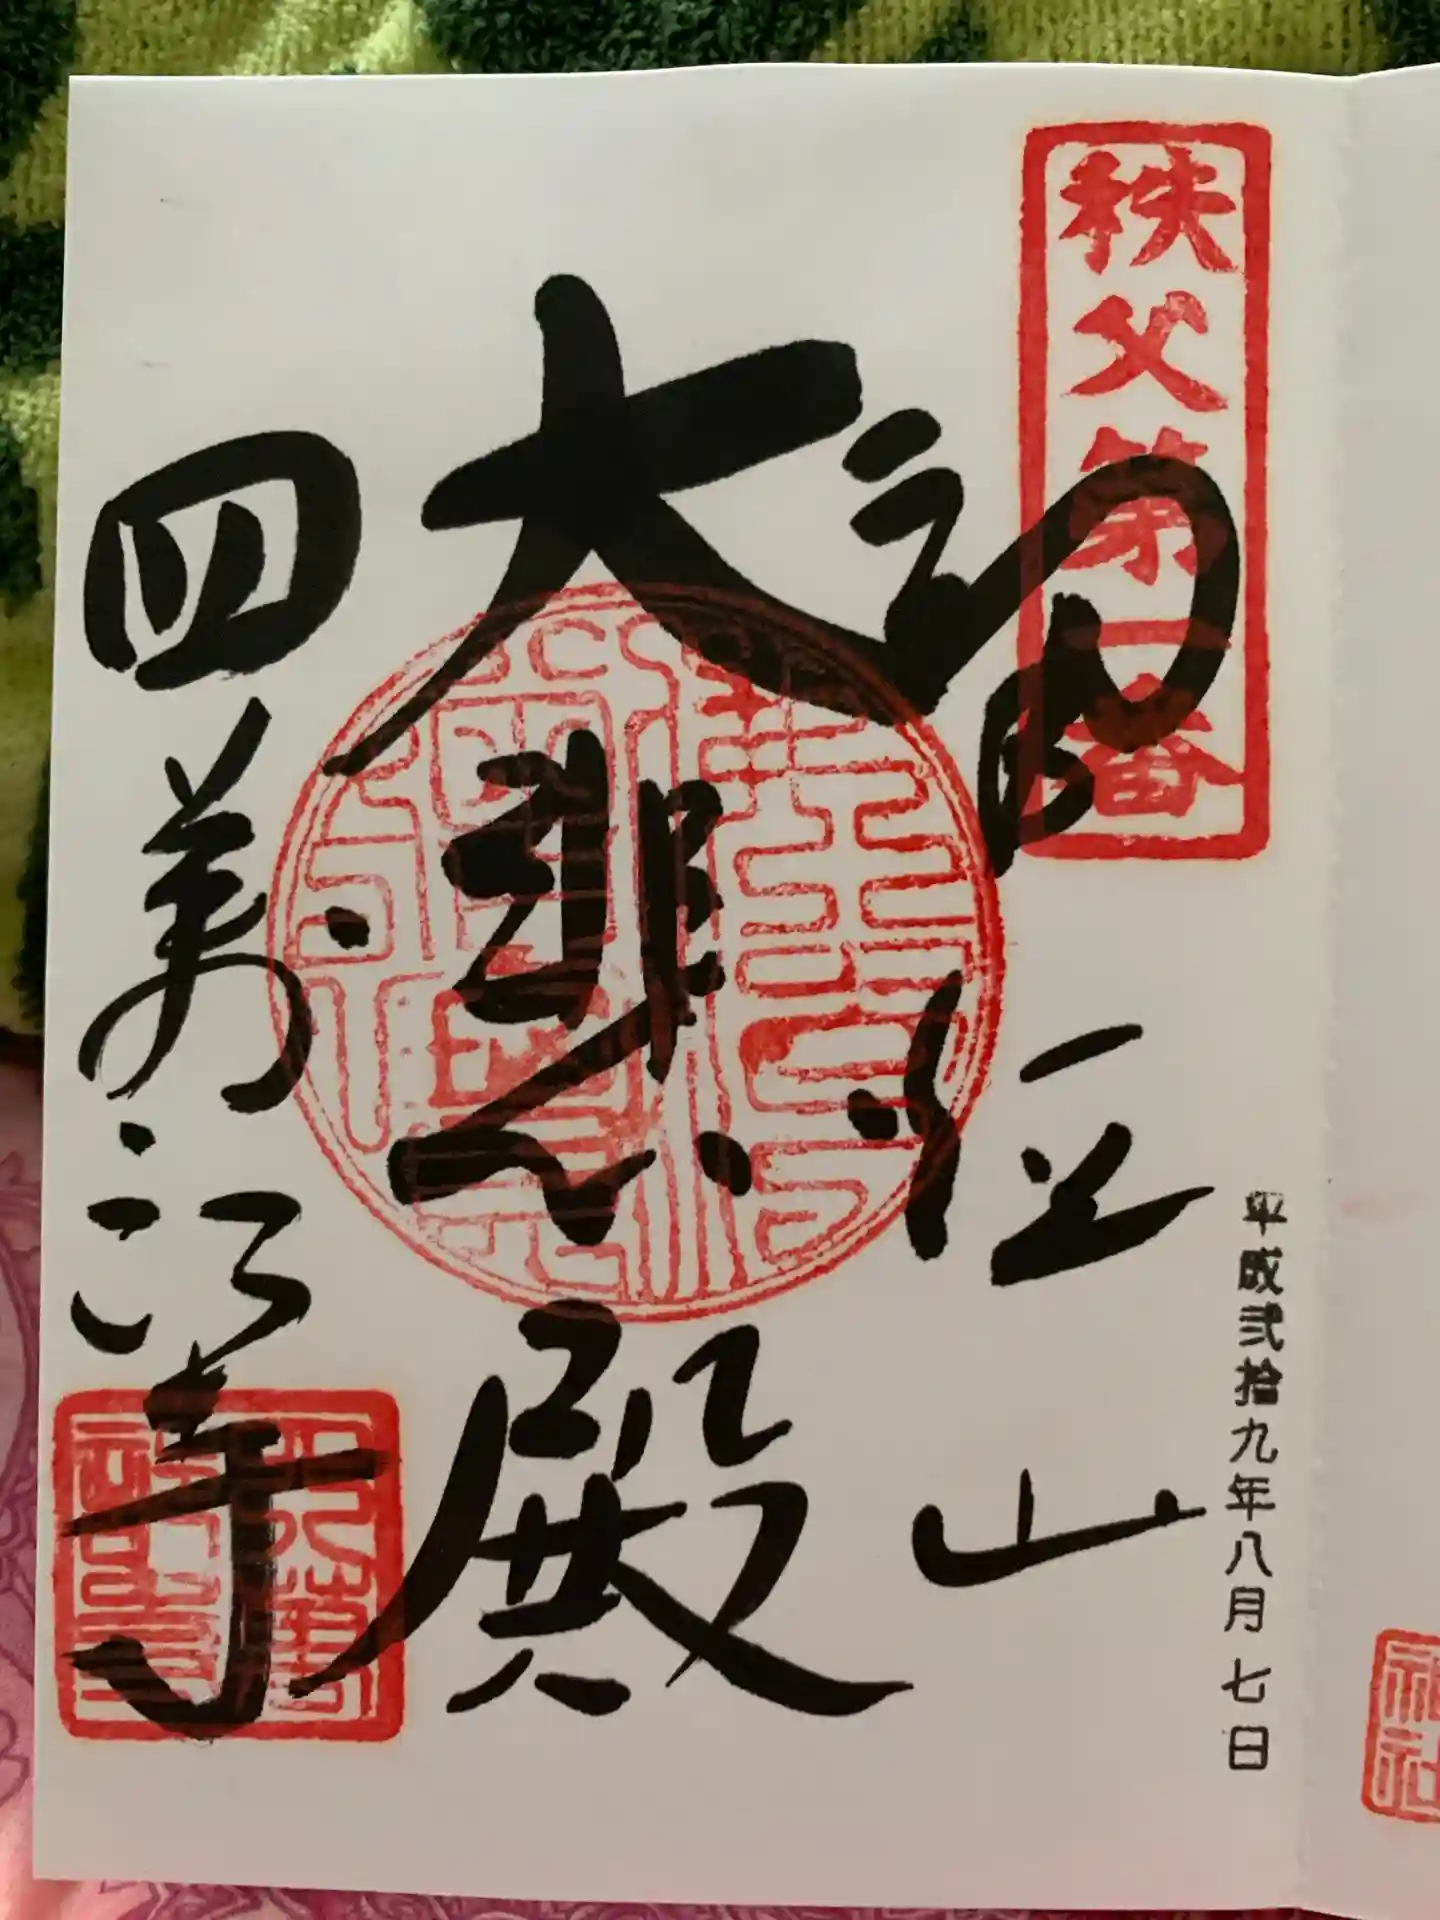 秩父第一番
平成弐拾九年八月七日
誦経山
大悲殿
四萬部寺